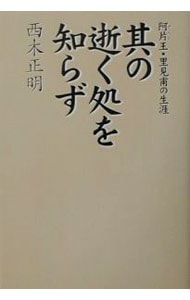 阿片王・里見甫の生涯
其の
逝く処を
知らず
西木正明